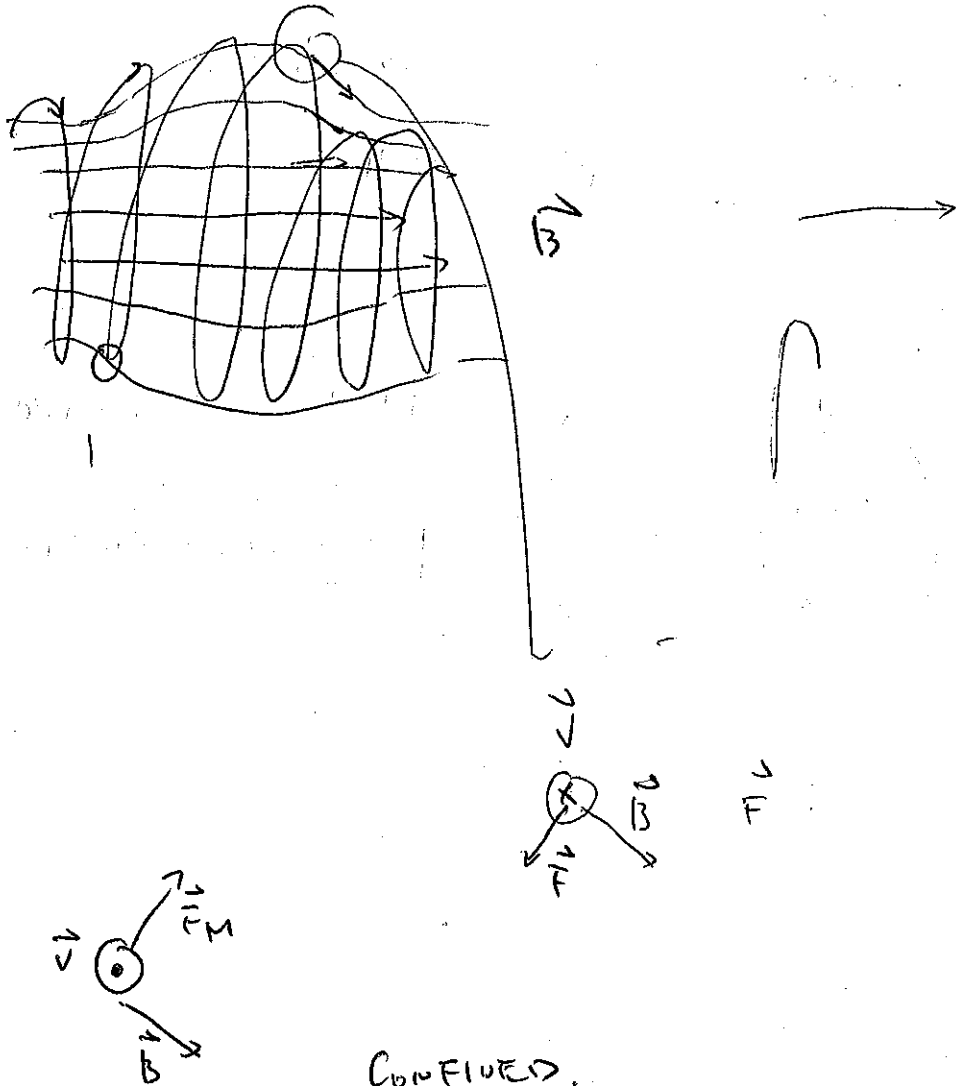 B⃗
v⃗
B⃗ F⃗
F⃗
F⃗M
v⃗
B⃗
CONFINED.